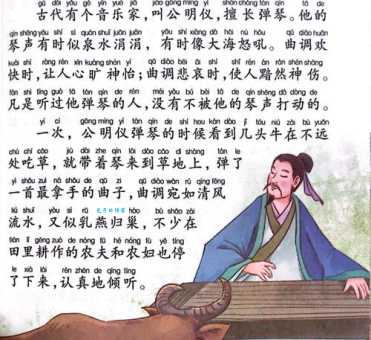 gǔ dài yǒu gè yīn yuè jiā jiào gōng míng yí shàn cháng tán qín tā de
古代有个音乐家,叫公明仪,擅长弹琴。他的
qín shēng yǒu shí sì quán shuǐ juān juān yǒu shí xiàng dà hǎi nù hǒu qǔ diào huān
琴声有时似泉水涓涓,有时像大海怒吼。曲调欢
kuài shí ràng rén xīn kuàng shén yí qǔ diào bēi āi shí shǐ rén àn rán shén shāng
快时,让人心旷神怡;曲调悲哀时,使人黯然神伤。
fán shì tīng guò tā tán qín de rén méi yǒu bù bèi tā de qín shēng dǎ dòng de
凡是听过他弹琴的人,没有不被他的琴声打动的。
yí cì gōng míng yí tán qín de shí hou kàn dào jǐ tóu niú zài bù yuǎn
一次,公明仪弹琴的时候看到几头牛在不远
chù chī cǎo jiù dài zhe qín lái dào cǎo dì shàng tán le
处吃草,就带着琴来到草地上,弹了
yì shǒu zuì ná shǒu de qǔ zi qǔ diào wǎn rú qīng fēng
一首最拿手的曲子,曲调宛如清风
liú shuǐ yòu sì rǔ cháo bù shǎo zài
流水,又似乳燕归巢,不少在
tián lǐ gēng zuò de nóng fū hé nóng fù yě tíng
田里耕作的农夫和农妇也停
le xià lái rèn zhēn de qīng tīng
了下来,认真地倾听。